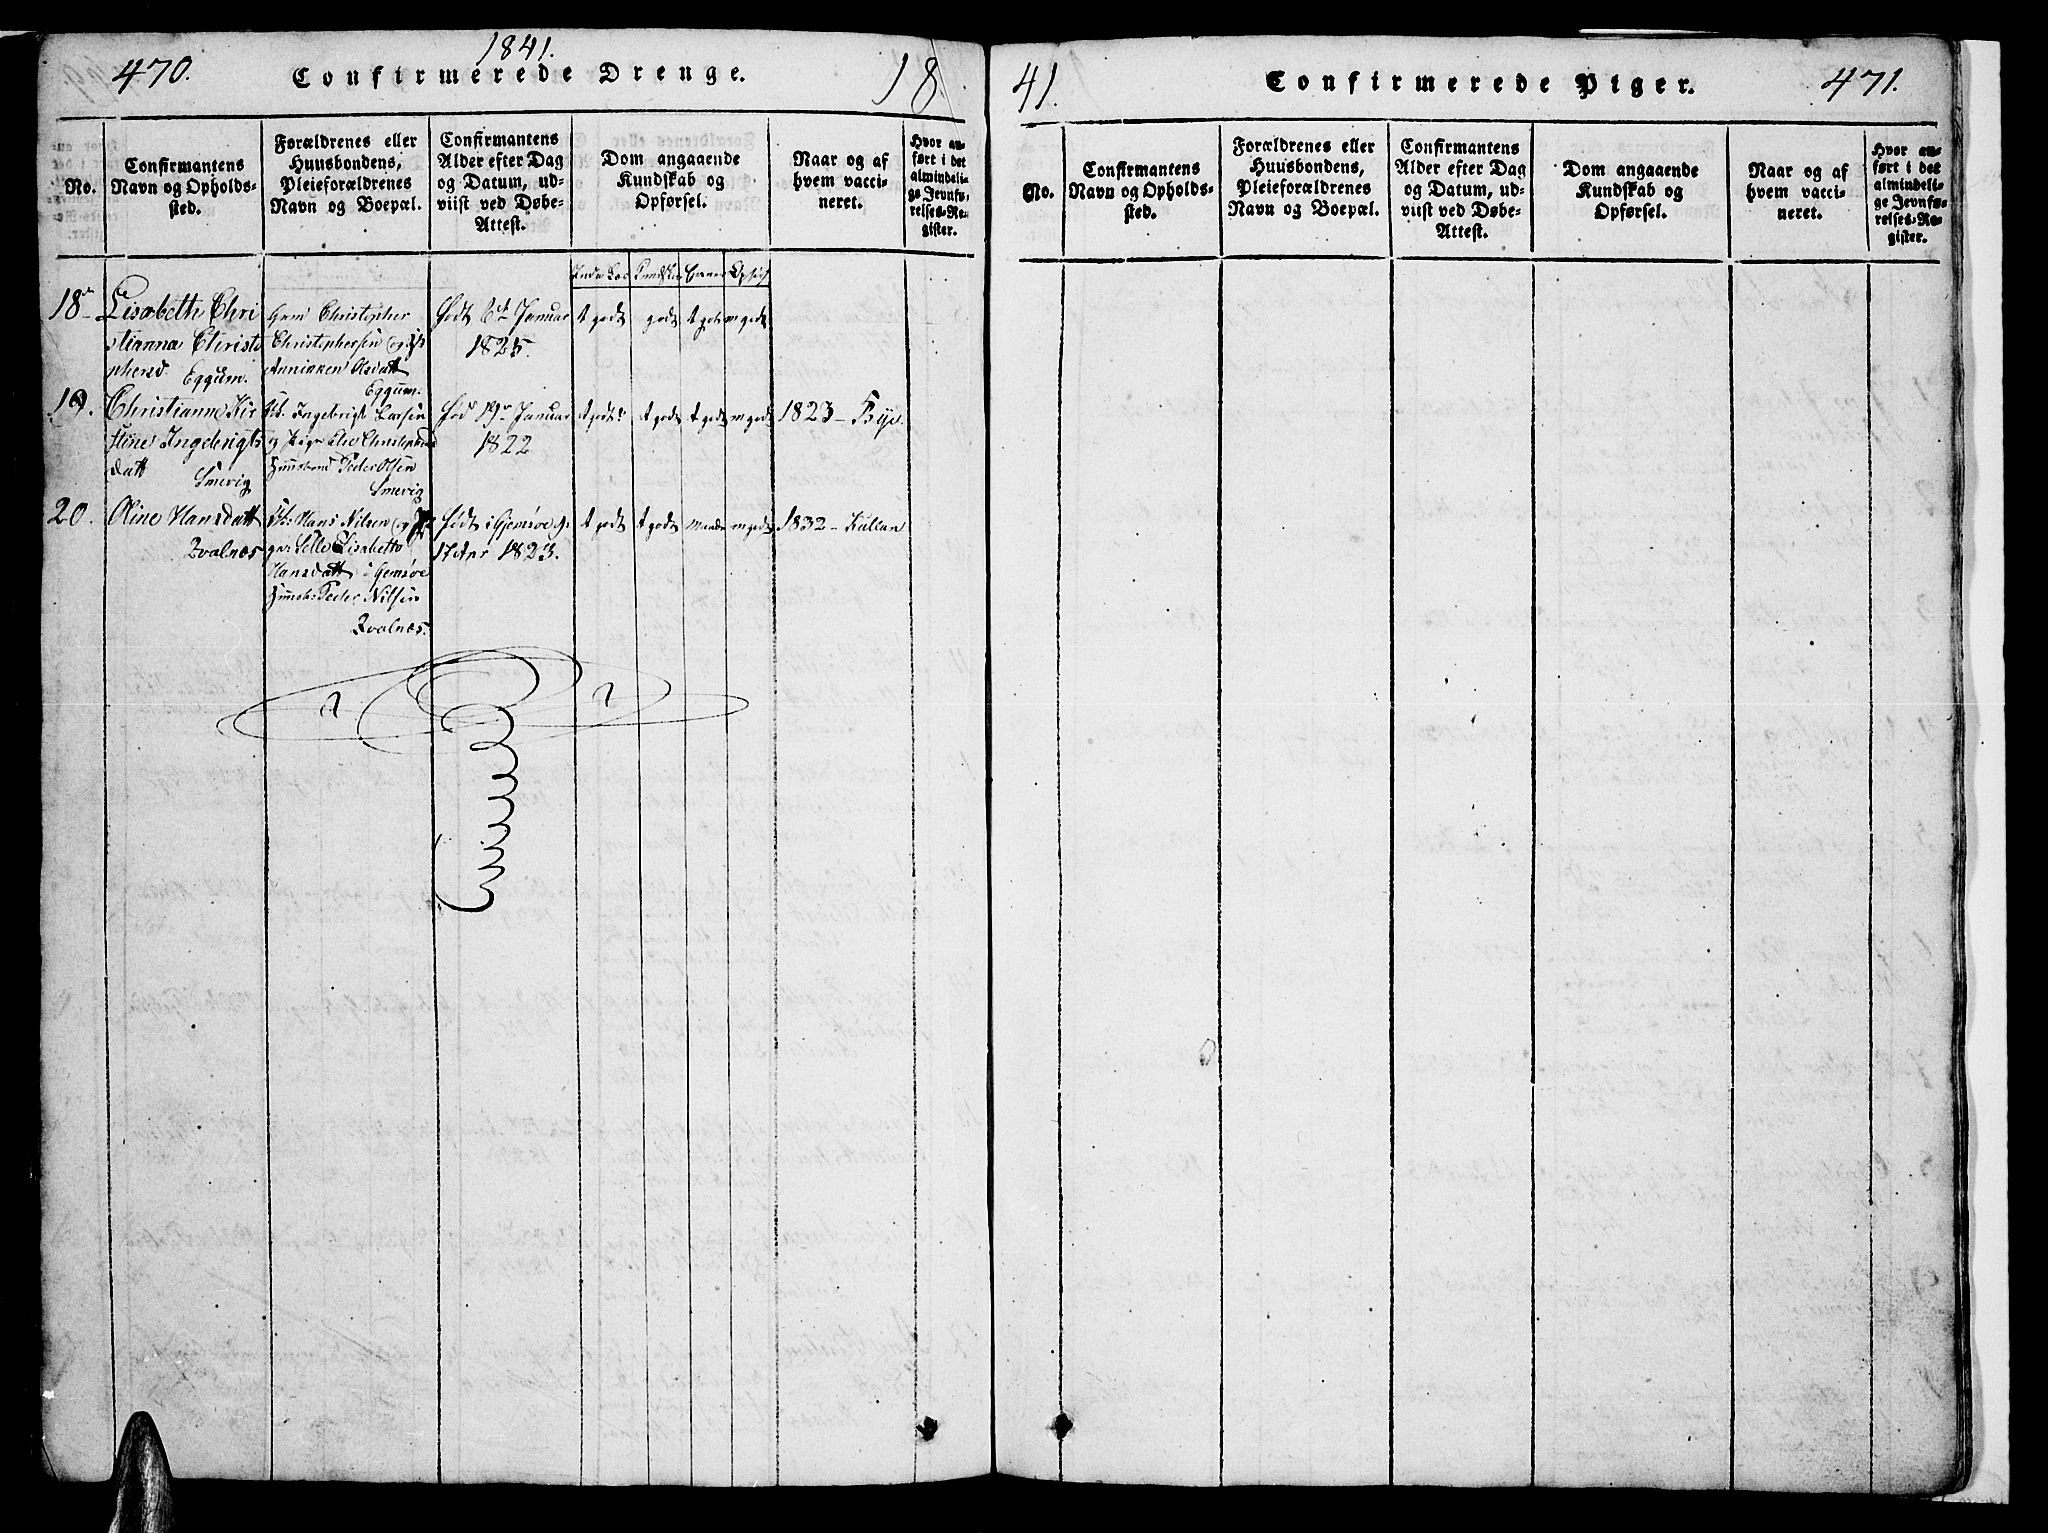 470.
1841.
Confirmerede Drenge.
18
No.
Confirmantens
Navn og Opholds-
sted.
Forældrenes eller
Huusbondens,
Pleieforældrenes
Navn og Boepæl.
Confirmantens
Alder efter Dag
og Datum, ud-
viist ved Døbe-
Attest.
Dom angaaende
Kundskab og
Opførsel.
Naar og af
hvem vacci-
neret.
Hvor an-
ført i det
almindeli-
ge Jevnfø-
relses-Re-
gister.
18
Lisabeth Chri
stianna Christo
phersd. Eggum.
Christopher
Christophersen og
Anniken Olsdatt
Eggum.
født 6te Januar
1825.
t godt godt t godt m godt
19.
Christianne Kir
stine Ingebrigts
datt
Smevig
Ingebrigt Larsen
Huusbond Peder Olsen
Smevig
19 Januar
1822
t godt t godt t godt m godt
1823 - Bye
20.
Oline Hansdatt
Qvalnæs
Hans Nilsen og
Lisabetta
Hansdatt i Gemsøe
Peder Nilsen
Qvalnæs.
født i Gjemsøe
17 Apr 1823.
t godt t godt m godt
1832 - Kullan
41.
Confirmerede Piger.
471.
No.
Confirmantens
Navn og Opholds-
sted.
Forældrenes eller
Huusbondens,
Pleieforældrenes
Navn og Boepæl.
Confirmantens
Alder efter Dag
og Datum, ud-
viist ved Døbe-
Attest.
Dom angaaende
Kundskab og
Opførsel.
Naar og af
hvem vacci-
neret.
Hvor an-
ført i det
almindeli-
ge Jevnfø-
relses-Re-
gister.